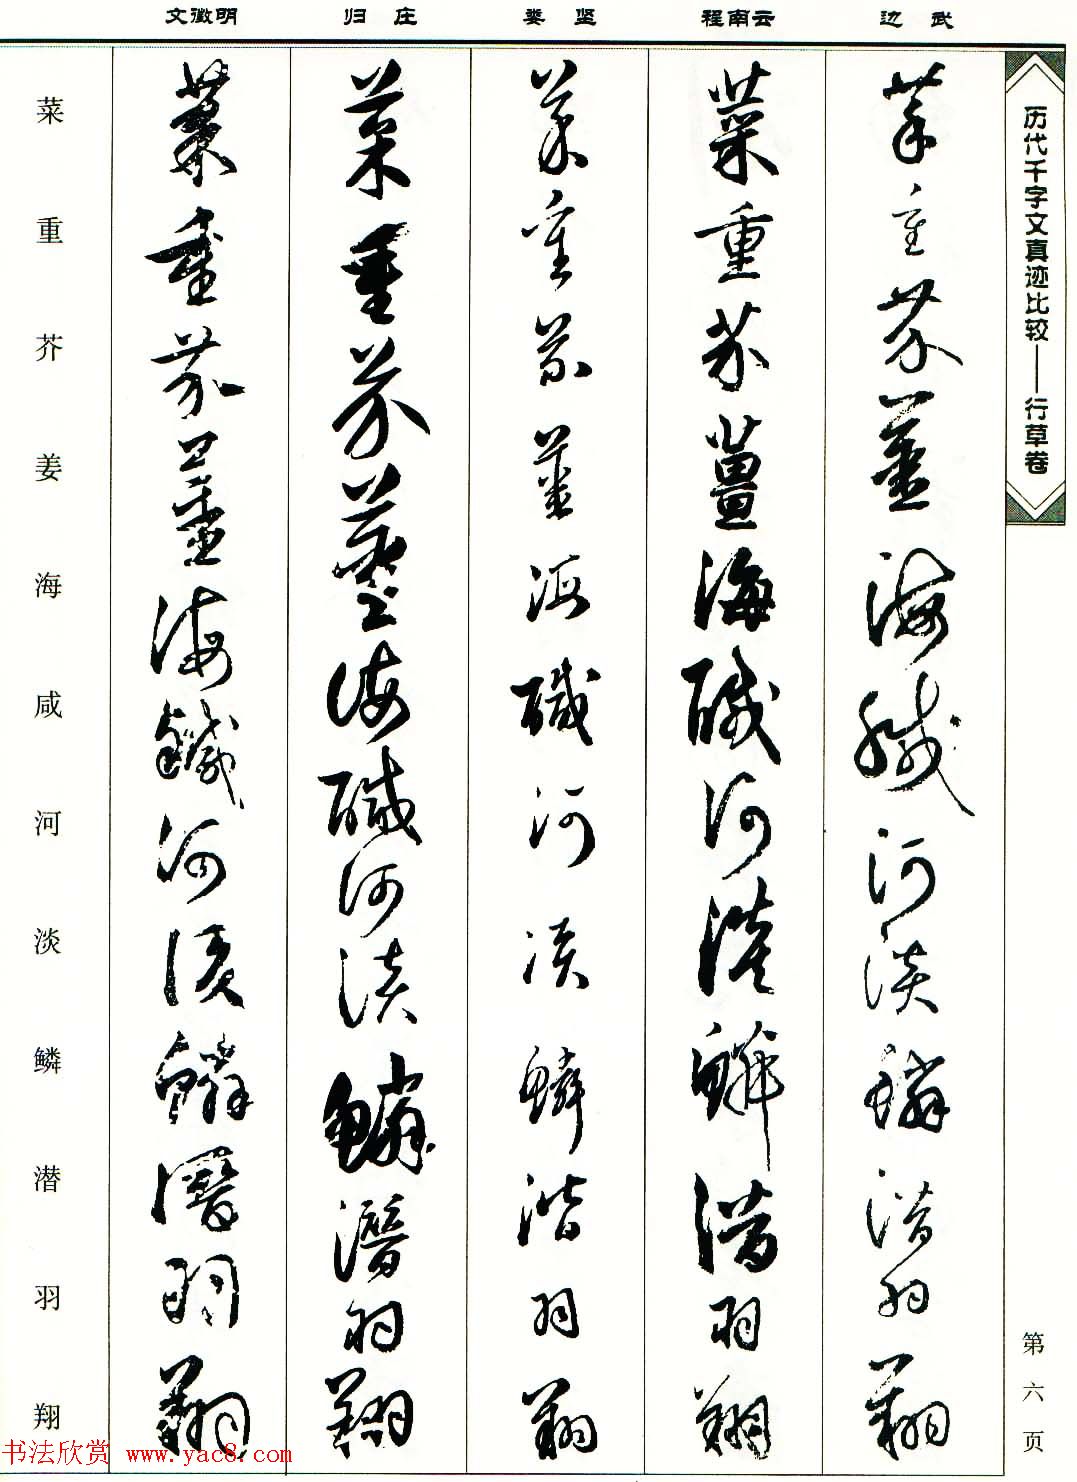 历代千字文真迹比较——行草卷
第六页
边 武
菜重芥薑海鹹河淡鱗潛羽翔
程南云
菜重芥薑海醎河淡鱗潛羽翔
娄 坚
菜重芥薑海醎河淡鱗潛羽翔
归 庄
菜重芥薑海醎河淡鱗潛羽翔
文徵明
菜重芥薑海鹹河淡鱗潛羽翔
菜重芥姜海咸河淡鳞潜羽翔
书法欣赏 www.yac8.com